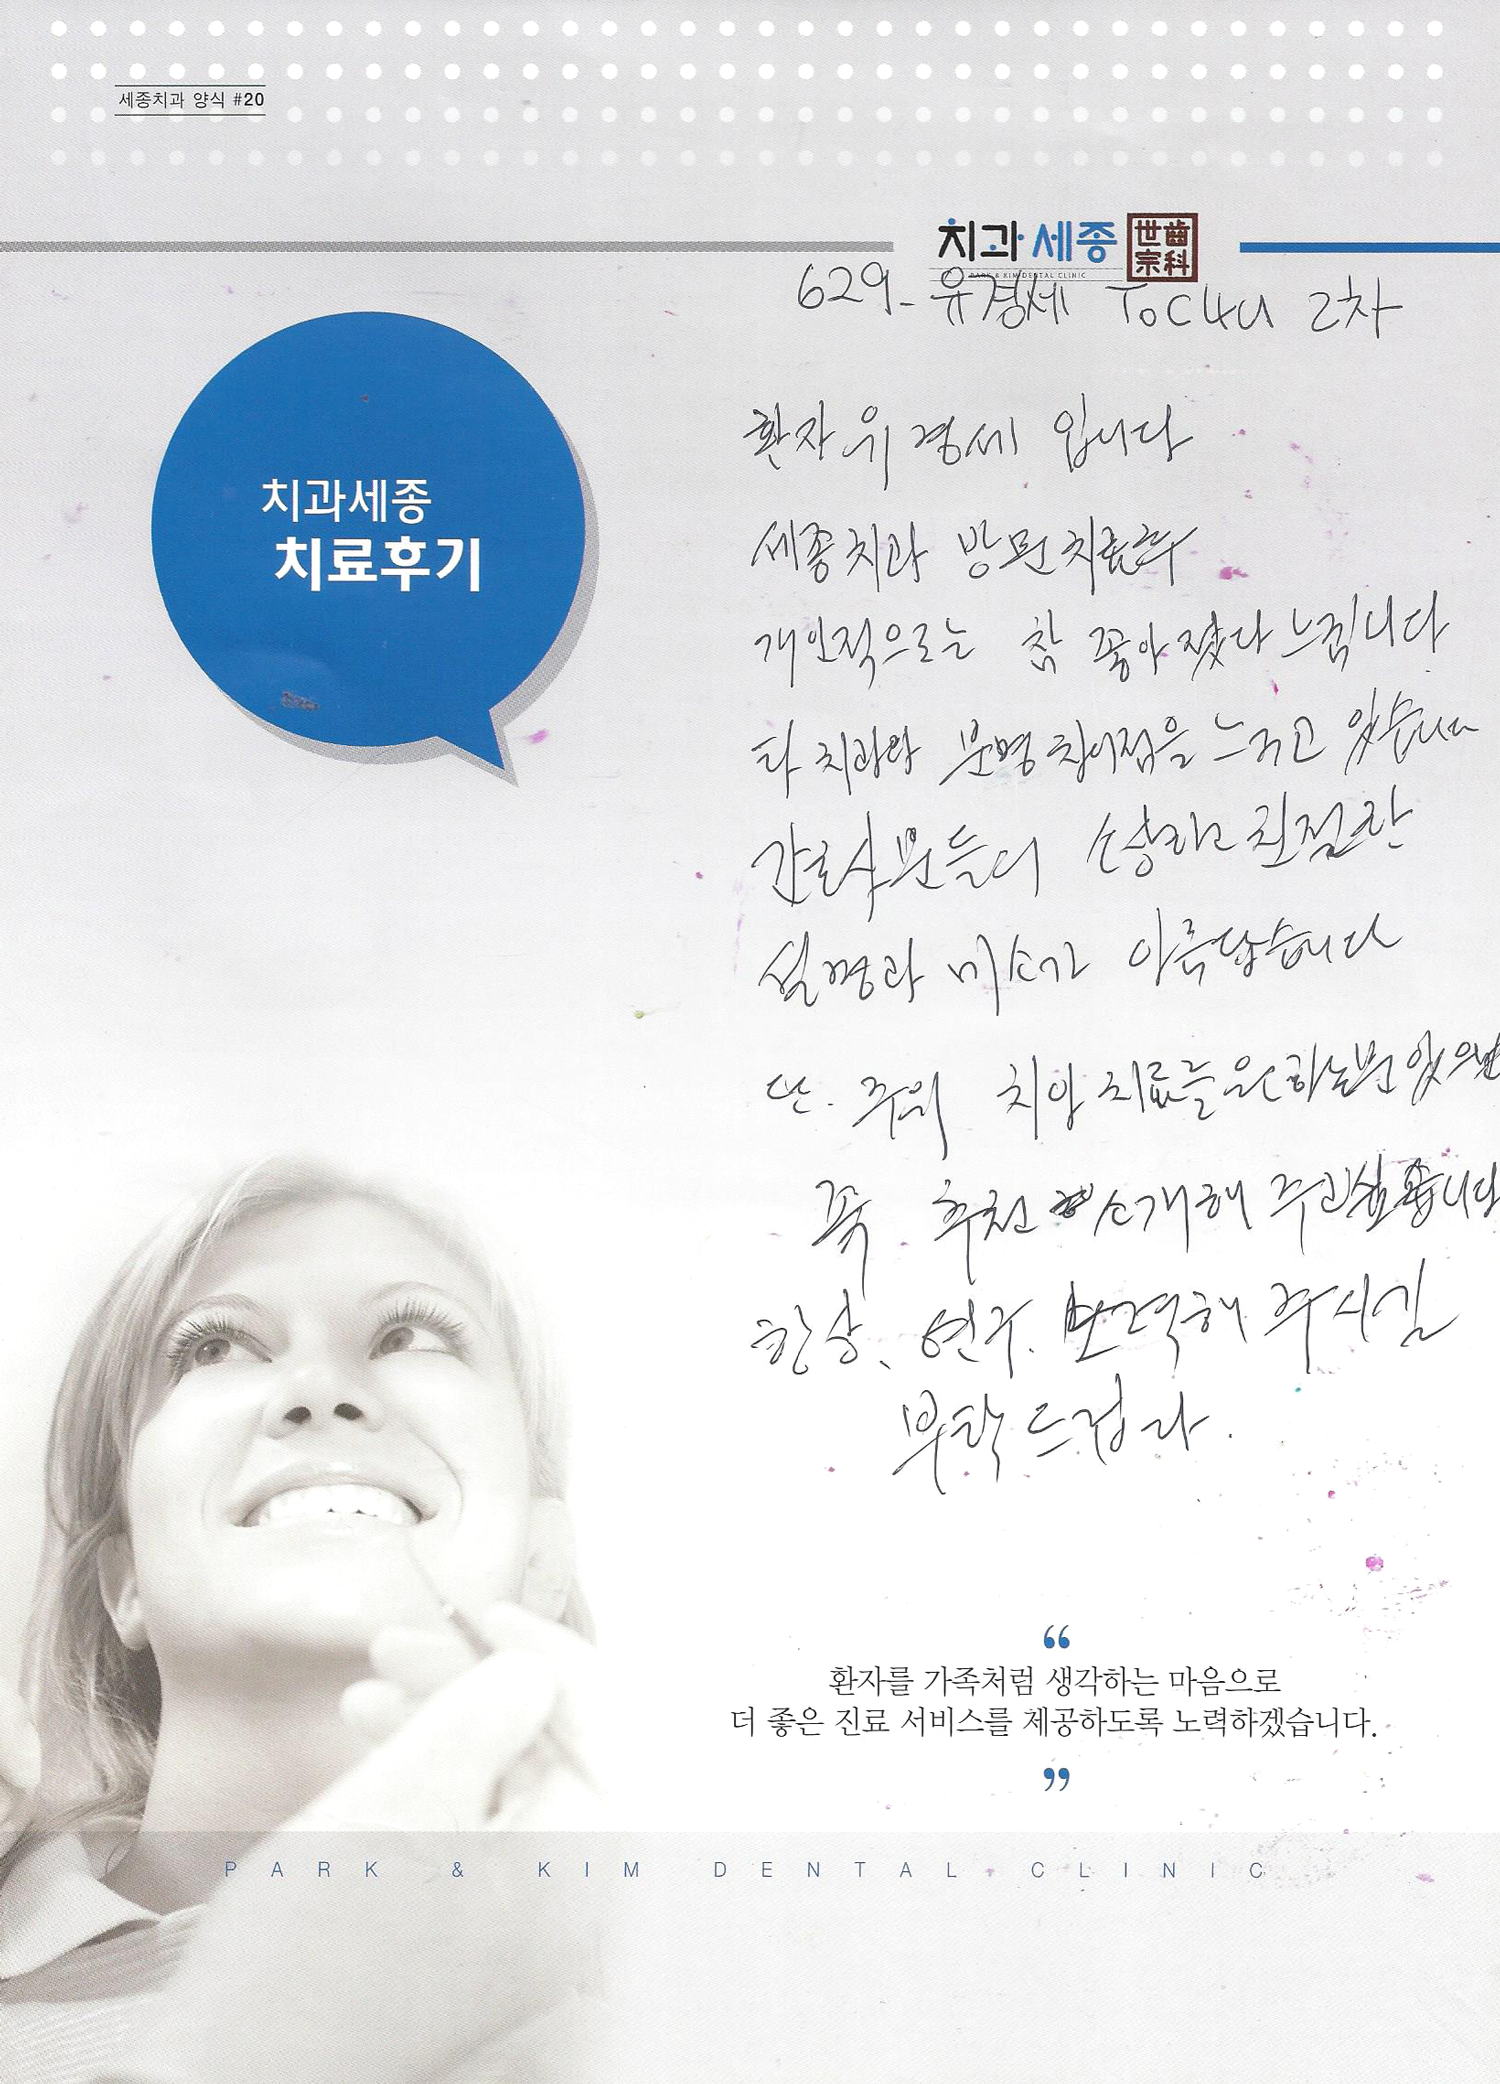 세종치과 양식 #20
치과세종 世宗齒科
PARK & KIM DENTAL CLINIC
629- 유경세 ToC4U 2차
치과세종
치료후기
환자 유경세 입니다
세종치과 방문치료후
개인적으로는 참 좋아졌다 느낍니다
타 치과와 분명 차이점을 느끼고 있습니다
간호사분들의 상냥하고 친절한
설명과 미소가 아름답습니다
단. 주위 치아 치료를 원하는분 있으면
꼭. 추천 소개해 주고싶습니다
항상. 연구. 노력해 주시길
부탁드립니다.
“
환자를 가족처럼 생각하는 마음으로
더 좋은 진료 서비스를 제공하도록 노력하겠습니다.
”
PARK & KIM DENTAL CLINIC